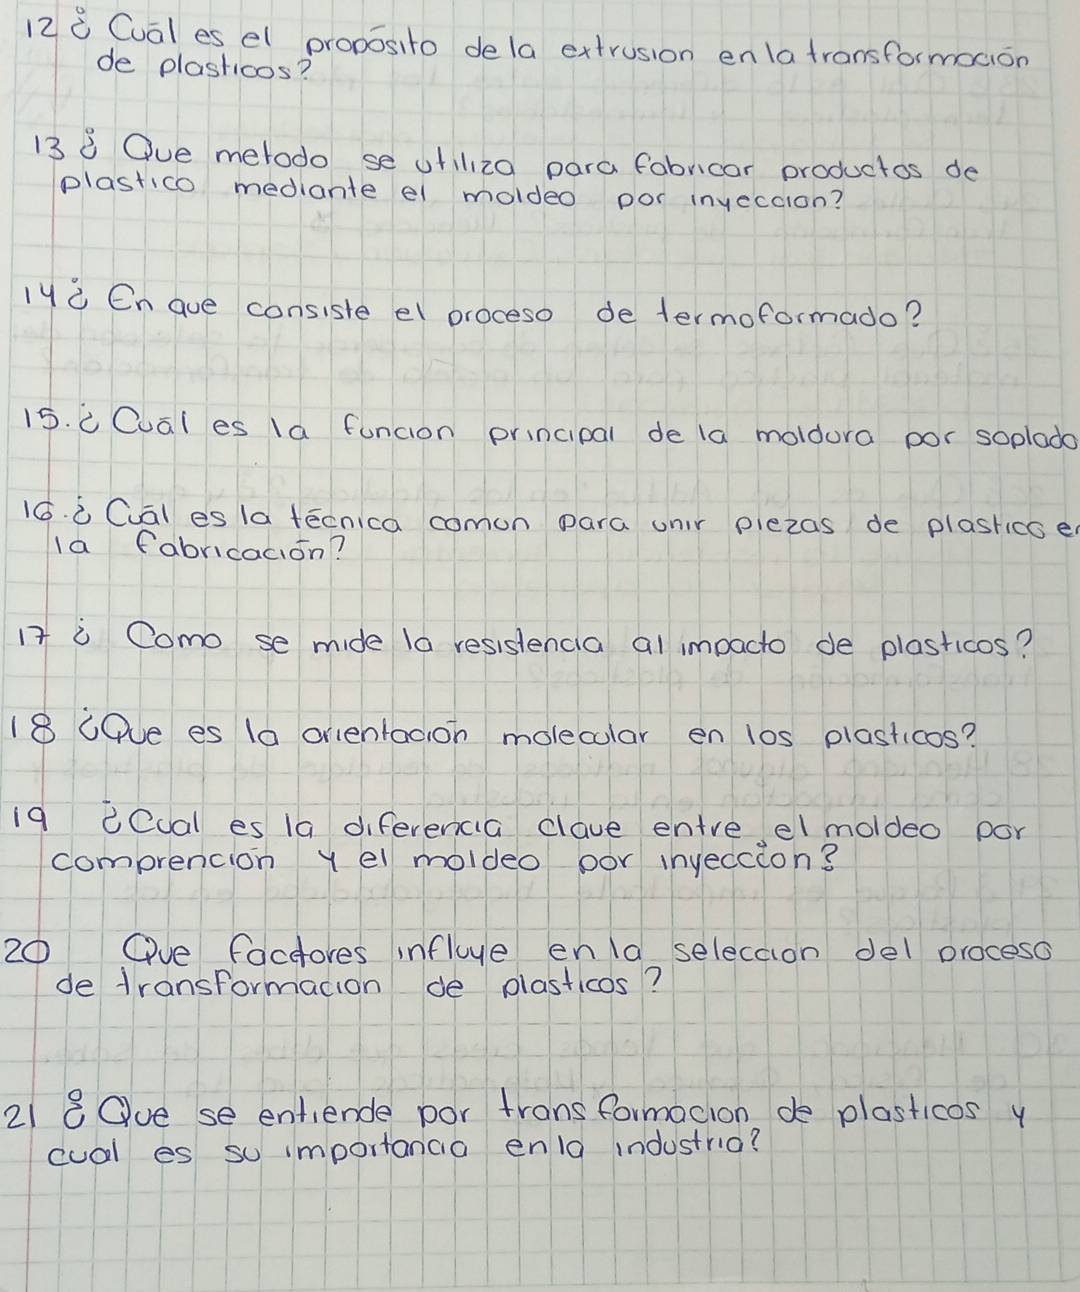 12 ¿ Cuál es el propósito de la extrusion en la transformación
de plasticos?
13 ¿ Que metodo se utiliza para fabricar productos de
plastico mediante el moldeo por inyeccion?
14 ¿ En que consiste el proceso de termoformado?
15. ¿ Cuál es la funcion principal de la moldura por soplado
16. ¿ Cuál es la técnica comun para unir piezas de plastico en
la fabricación?
17 ¿ Como se mide la resistencia al impacto de plasticos?
18 ¿Que es la orientación molecular en los plasticos?
19 ¿Cual es la diferencia clave entre el moldeo por
comprención y el moldeo por inyeccion?
20 Que factores influye en la seleccion del proceso
de transformacion de plasticos?
21 ¿ Que se entiende por transformacion de plasticos y
cual es su importancia en la industria?